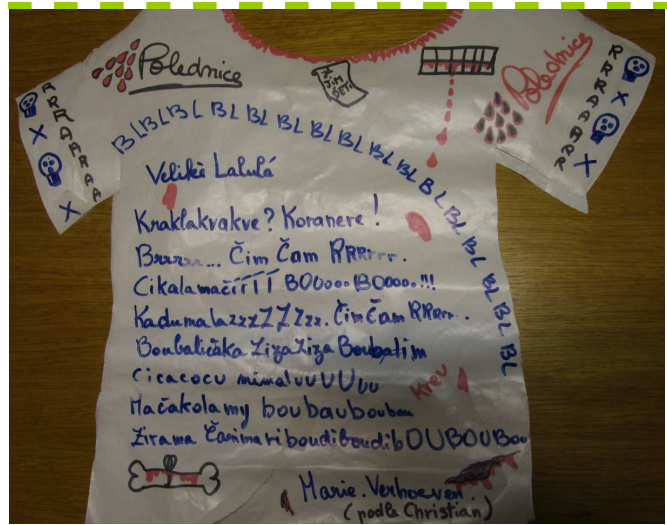 Polednice
JÍM
DĚTI
Polednice
BL BL BL BL BL BL BL BL BL BL BL BL BL BL BL BL BL
Veliké Lalulá
Kraklakvakve? Koranere!
Brrrrr... Čim Čam RRRrrr.
CikalamačíÍÍÍÍ BOUoooo BOoooo.!!!
KadumalazzzZZZZzz. Čim Čam RRRrrr..
Boubaličáka ZizaZiza Boubalim
Cicacocu mimaluuUUuu
Mačakolamy boubauboubou
Zirama Čamimariboudiboudib OUBOUBou
Krev
Marie Verhoeven
(podle Christian)